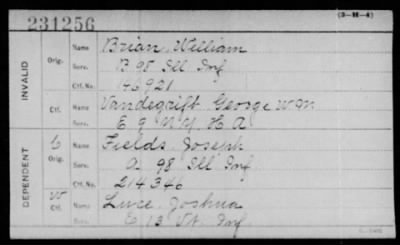 231256
(3-H-4)
INVALID
Orig.
Name Brian, William
Serv. B 98 Ill Inf
Ctf. No. 146921
Ctf. Name Vandegrift, George Wm
Serv. E 9 N.Y. H.A.
DEPENDENT
C
Orig.
Name Fields, Joseph
Serv. A 98 Ill Inf
Ctf. No. 214346
W
Ctf. Name Luce, Joshua
Serv. E 13 Vt. Inf